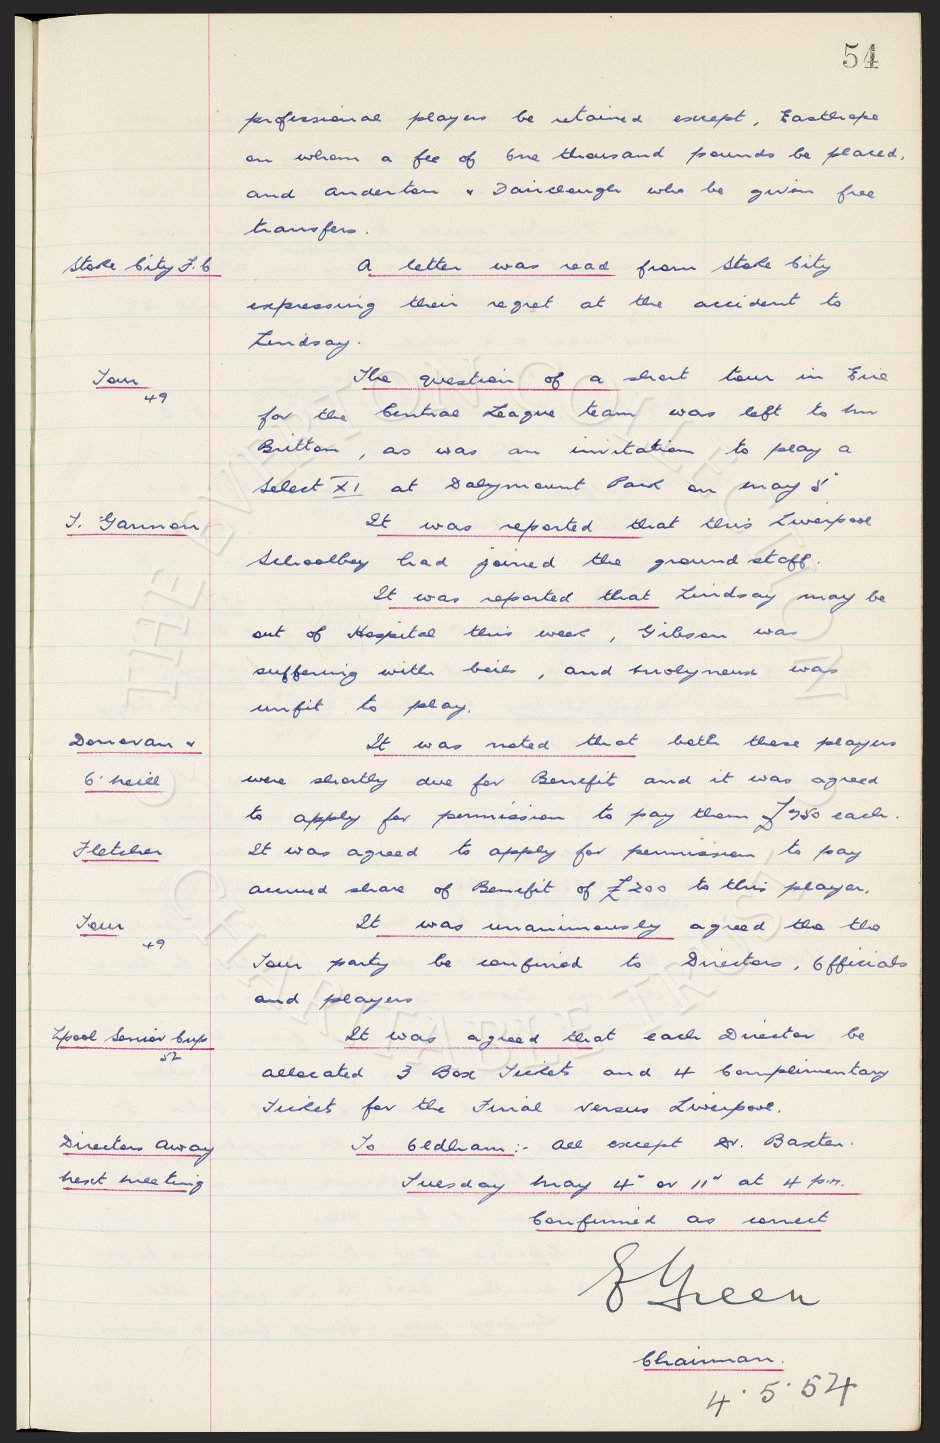 54
professional players be retained except, Easthope
on whom a fee of One thousand pounds be placed,
and Anderton & Fairclough who be given free
transfers.
Stoke City F.C A letter was read from Stoke City
expressing their regret at the accident to
Lindsay.
Tour The question of a short tour in Eire
49
for the Central League team was left to Mr
Britton, as was an invitation to play a
Select XI at Dalymount Park on May 5"
T. Gannon It was reported that this Liverpool
Schoolboy had joined the ground staff.
It was reported that Lindsay may be
out of Hospital this week, Gibson was
suffering with boils, and Molyneux was
unfit to play.
Donovan & It was noted that both these players
O'Neill were shortly due for Benefit and it was agreed
to apply for permission to pay them £750 each.
Fletcher It was agreed to apply for permission to pay
accrued share of Benefit of £200 to this player.
Tour It was unanimously agreed tha the
49
Tour party be confined to Directors, Officials
and players
Lpool Senior Cup It was agreed that each Director be
52
allocated 3 Box Tickets and 4 Complimentary
Tickets for the Final versus Liverpool.
Directors Away To Oldham:- All except Dr. Baxter.
Next Meeting Tuesday May 4" or 11" at 4 p.m.
Confirmed as correct
E Green
Chairman.
4.5.54
© THE EVERTON COLLECTION CHARITABLE TRUST